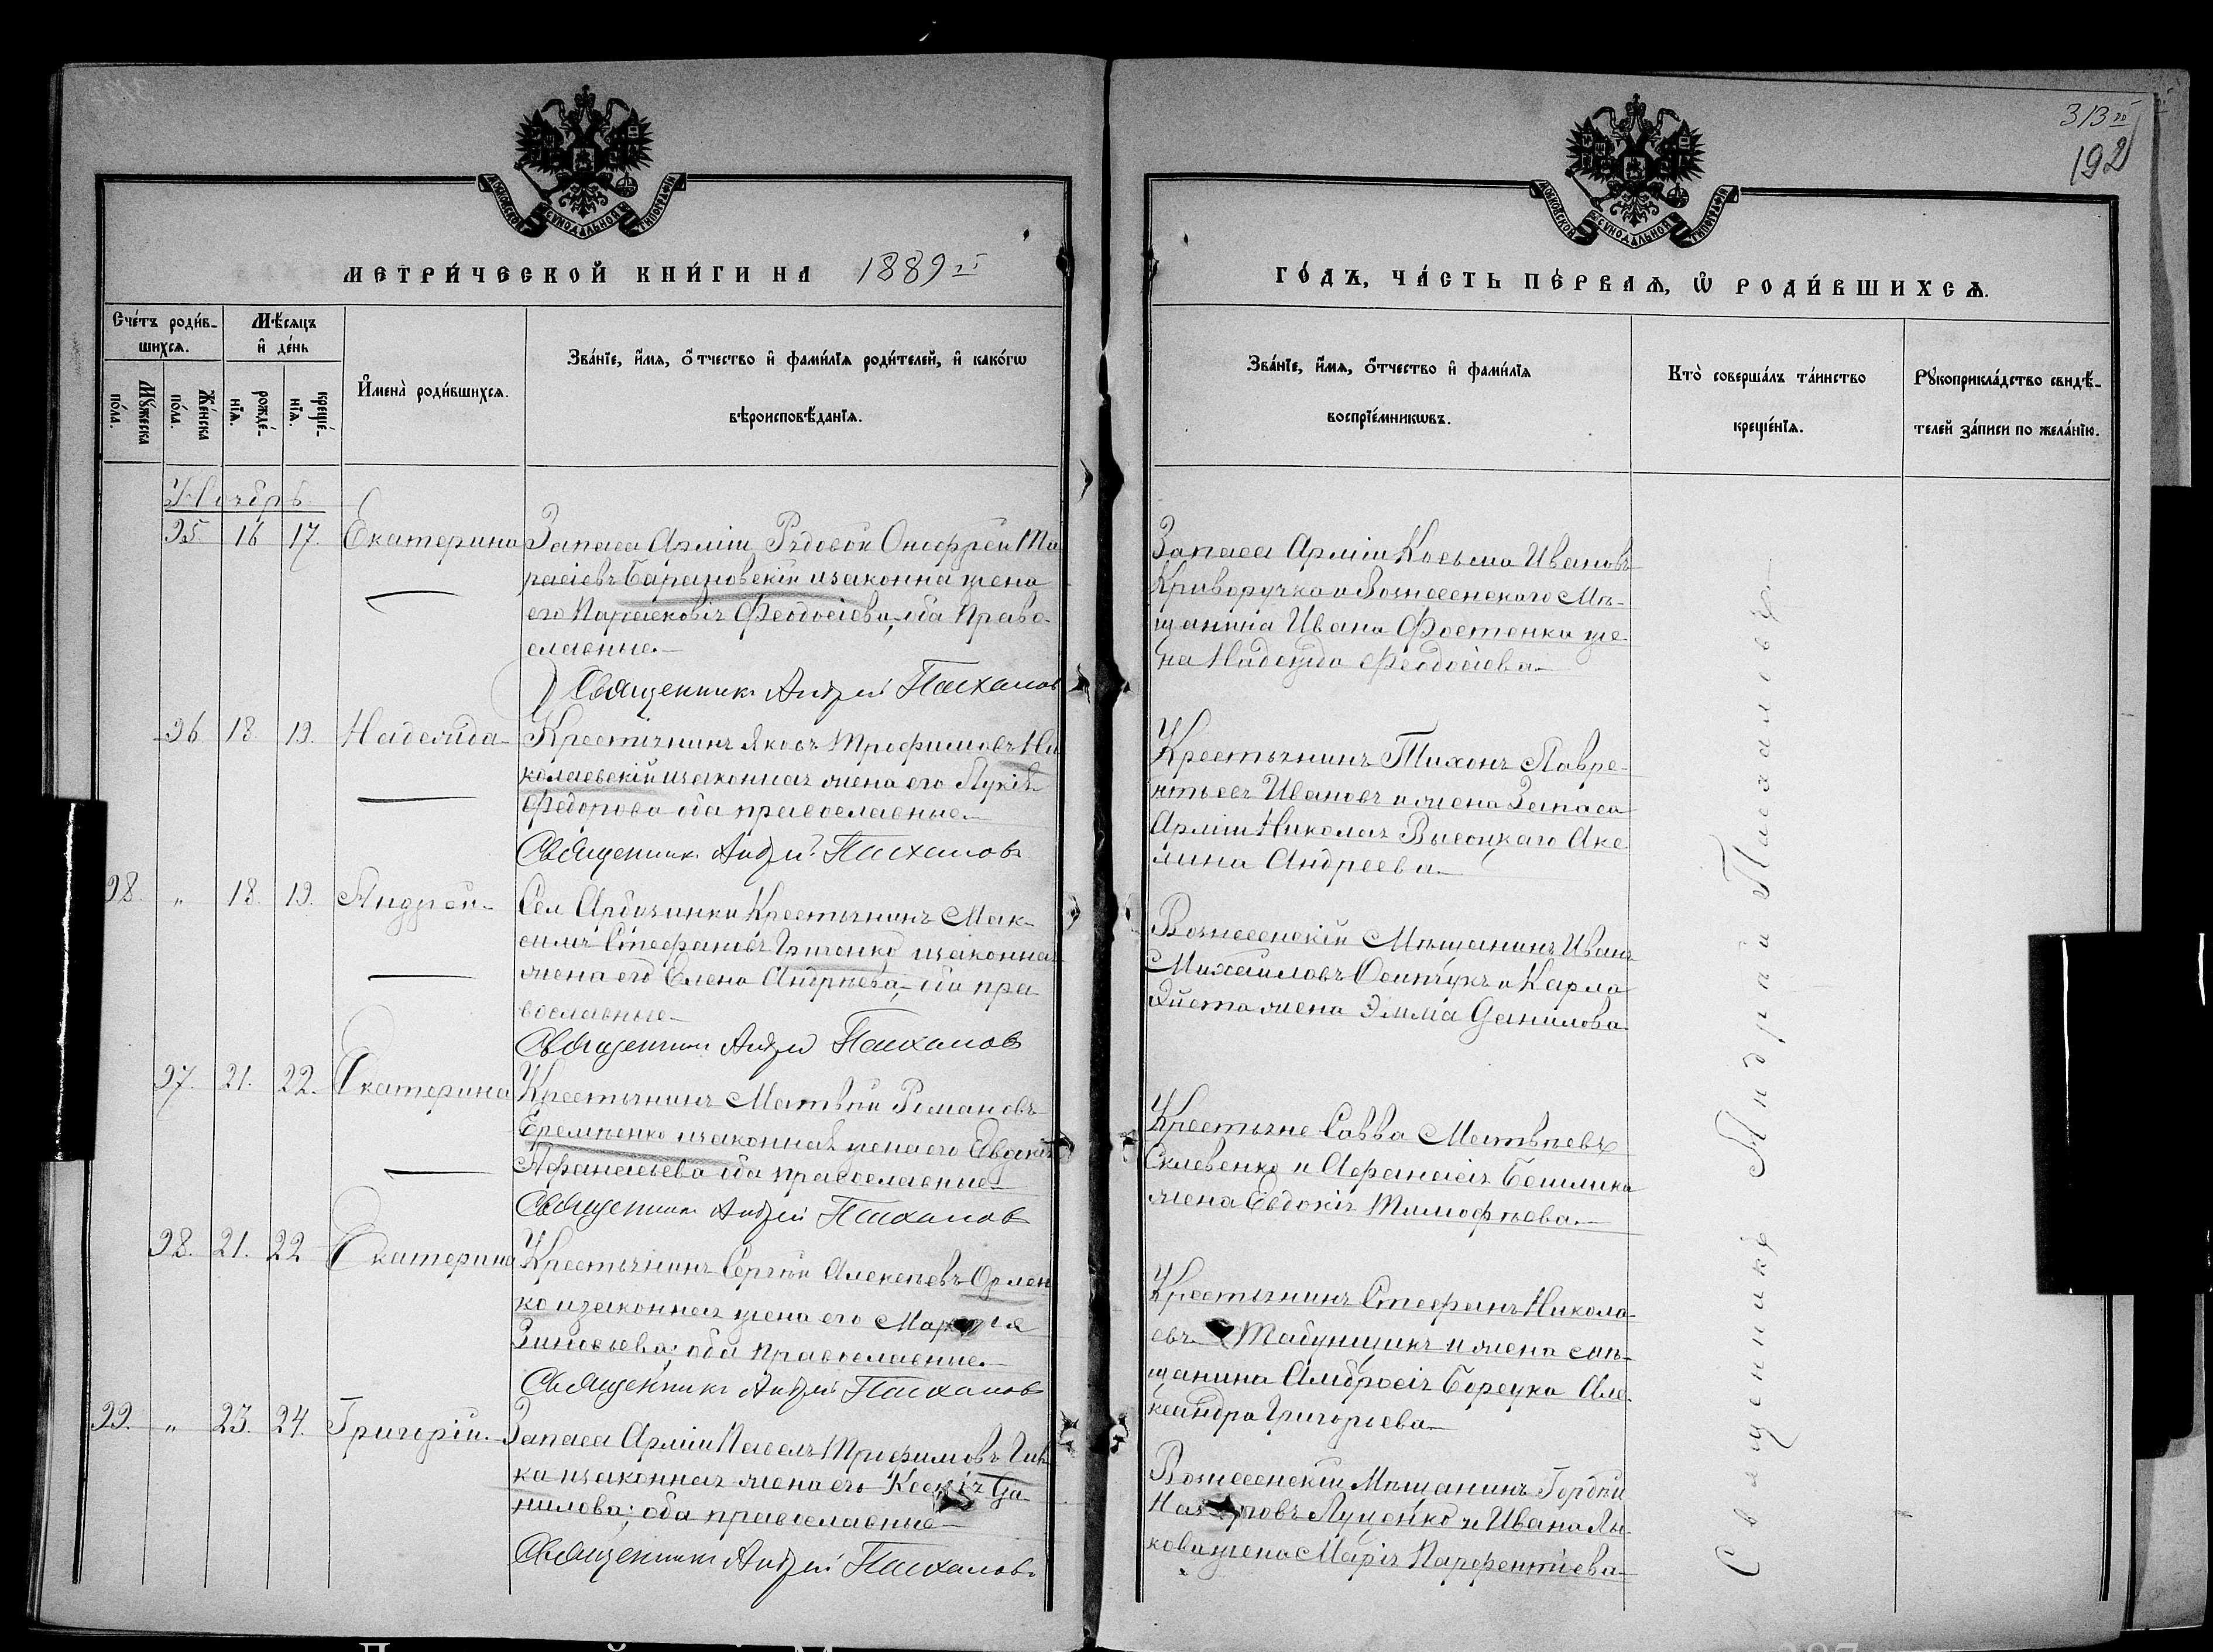 313
192
МОСКОВСКОЙ СѴНОДАЛЬНОЙ ТИПОГРАФІИ
МОСКОВСКОЙ СѴНОДАЛЬНОЙ ТИПОГРАФІИ
МЕТРИ́ЧЕСКОЙ КНИ́ГИ НА 1889
ГО́ДЪ, ЧА́СТЬ ПЕ́РВАѦ, Ѡ РОДИ́ВШИХСѦ.
Сче́тъ роди́в-
шихсѧ.
Мѣ́сѧцъ
и де́нь
Мꙋ́жеска
по́ла.
Же́нска
по́ла.
рожде́-
нїѧ.
креще́-
нїѧ.
Имена̀ роди́вшихсѧ.
Зва́нїе, и́мѧ, о́тчество и фами́лїѧ роди́телей, и како́гѡ
вѣроисповѣ́данїѧ.
Зва́нїе, и́мѧ, о́тчество и фами́лїѧ
воспрїе́мникѡвъ.
Кто̀ соверша́лъ та́инство
креще́нїѧ.
Рꙋкоприкла́дство свидѣ́-
телей за́писи по жела́нїю.
Ноябрь
95. 16 17. Екатерина
Запаса Арміи Рядовой Онофрей Та-
расіевъ Барановскій и законна жена
его Параскевія Феодосіева, оба Право-
славные.
Священникъ Андрей Пасхаловъ
Запаса Арміи Косьма Ивановъ
Криворучко и Вознесенскаго Мѣ-
щанина Ивана Фостенка же-
на Надежда Феодосіева
96 18. 19. Надежда
Крестьянинъ Яковъ Трофимовъ Ни-
колаевскій и законная жена его Лукія
Федорова оба православные.
Священникъ Андрей Пасхаловъ
Крестьянинъ Тихонъ Лавре-
нтьевъ Ивановъ и жена Запаса
Арміи Николая Высоцкаго Аке-
лина Андреева
98. " 18. 19. Андрей
Сел Арбузинки Крестьянинъ Мак-
симъ Стефановъ Гриценко и законная
жена его Елена Андреева, оба пра-
вославные
Священникъ Андрей Пасхаловъ
Вознесенскій Мѣщанинъ Иванъ
Михайловъ Осипчукъ и Карла
жена Эмма Данилова
97. 21. 22. Екатерина
Крестьянинъ Матвѣй Романовъ
Еремѣенко и законная жена его Евдокія
Афанасьева оба православные
Священникъ Андрей Пасхаловъ
Крестьяне Савва Матвѣевъ
Склевенко и Афанасія Бешлика
жена Евдокія Тимофѣева.
98. 21. 22 Екатерина
Крестьянинъ Сергѣй Алексѣевъ Орлен-
ко и законная жена его
Зиновьева; оба Православные.
Священникъ Андрей Пасхаловъ
Крестьянинъ Стефанъ Никола-
евъ Табунщикъ и жена мѣ-
щанина Амбросія Борсука Але-
ксандра Григорьева
99. " 23. 24. Григорій.
Запаса Арміи Павелъ Трофимовъ
ка и законная жена его Да-
нилова; оба православные
Священникъ Андрей Пасхаловъ
Вознесенскій Мѣщанинъ Гордѣй
Луценко и Ивана Лы-
кова жена Марія Парфентіева
Священникъ Андрей Пасхаловъ